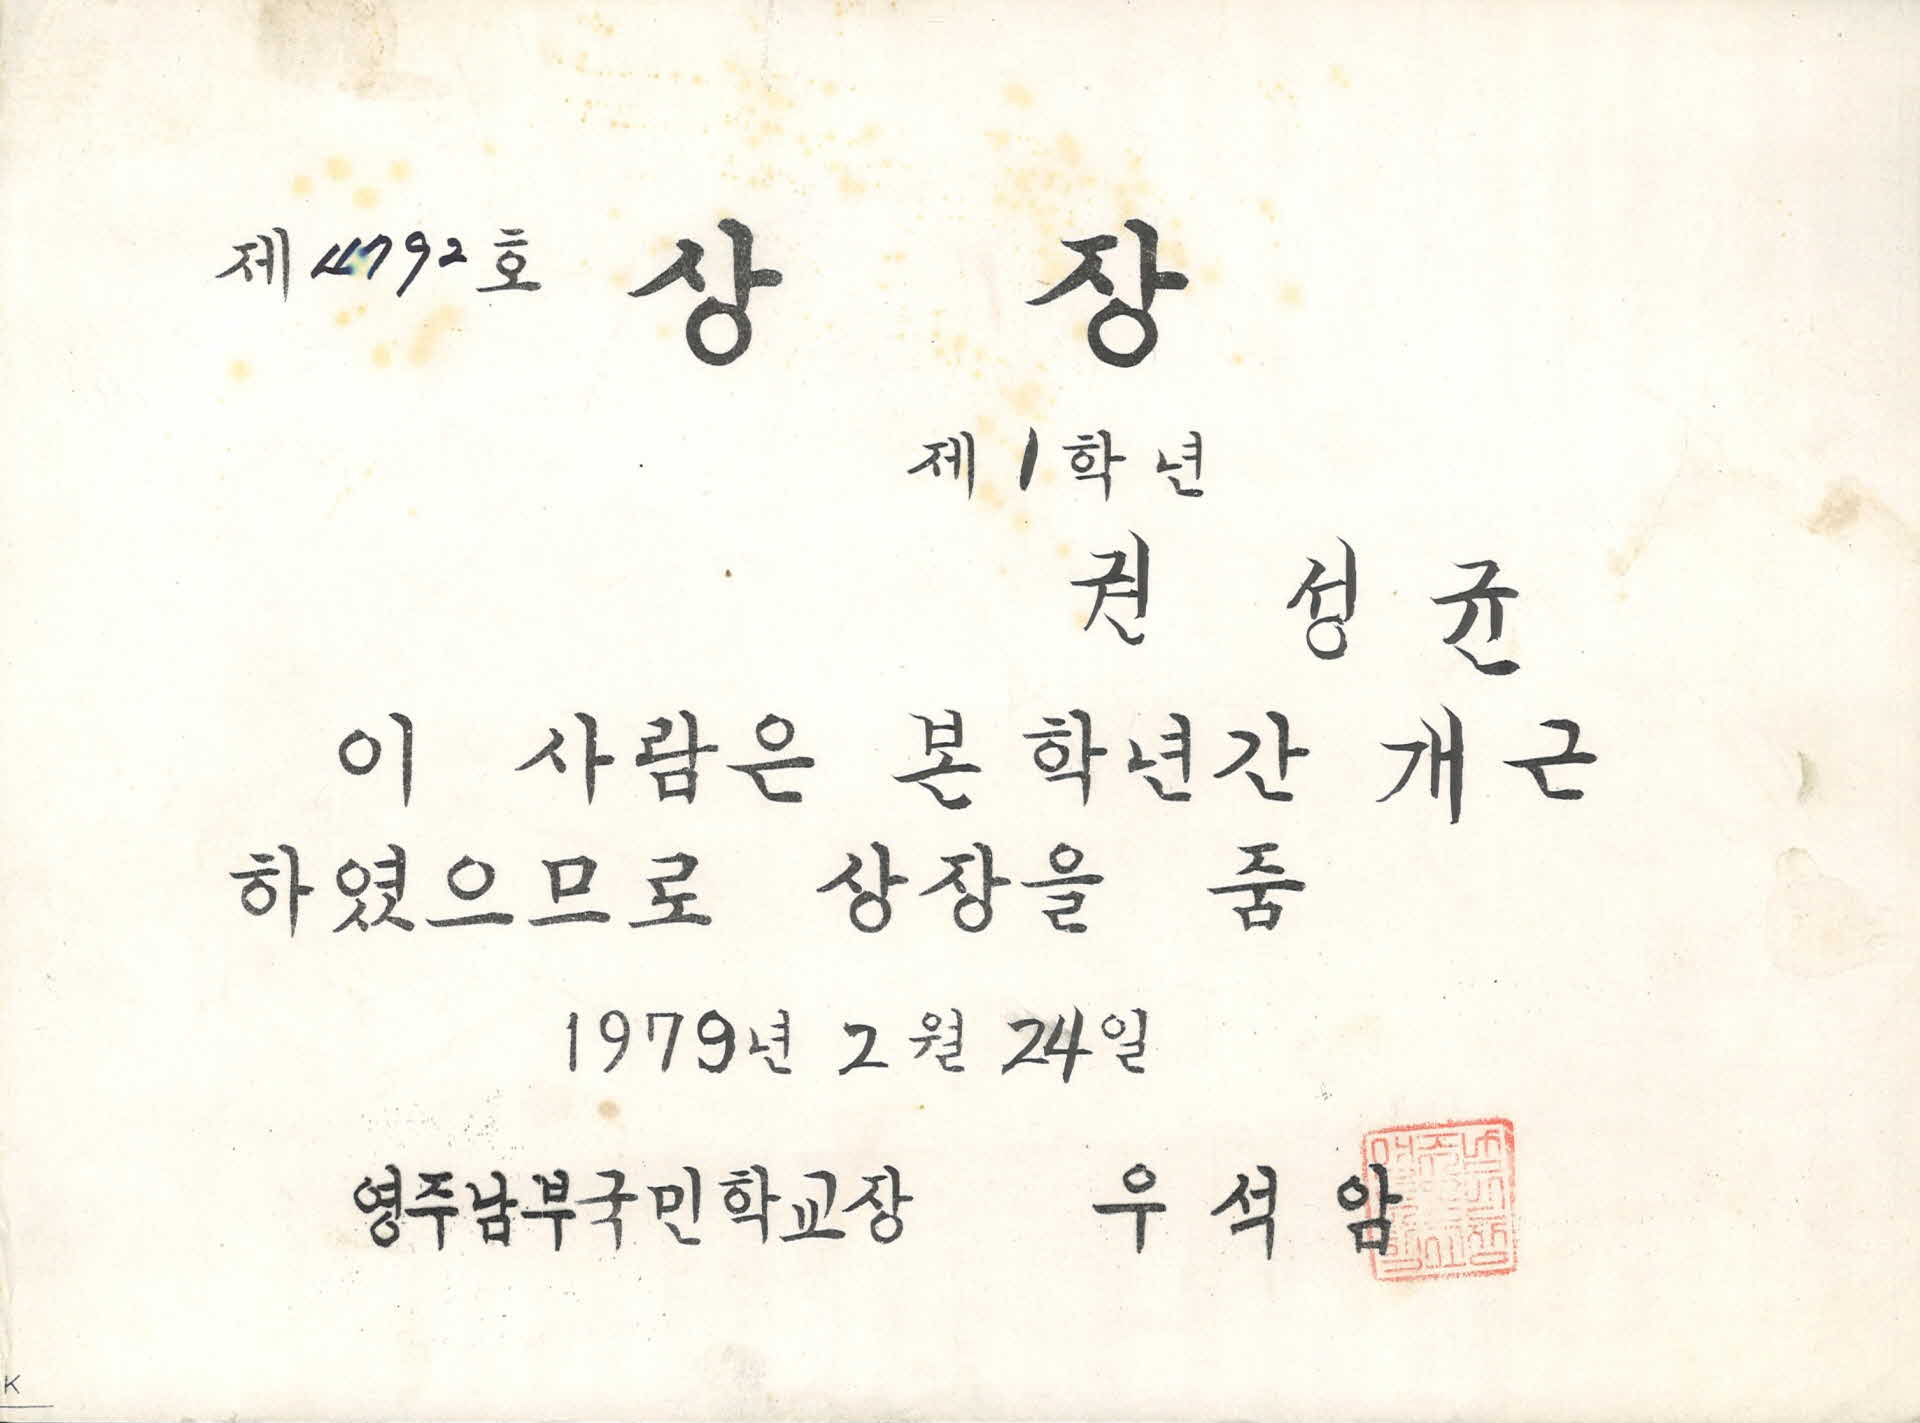 제 4792 호 상 장
제 1 학년
권 성 균
이 사람은 본 학년간 개근
하였으므로 상장을 줌
1979년 2월 24일
영주남부국민학교장 우 석 암
K